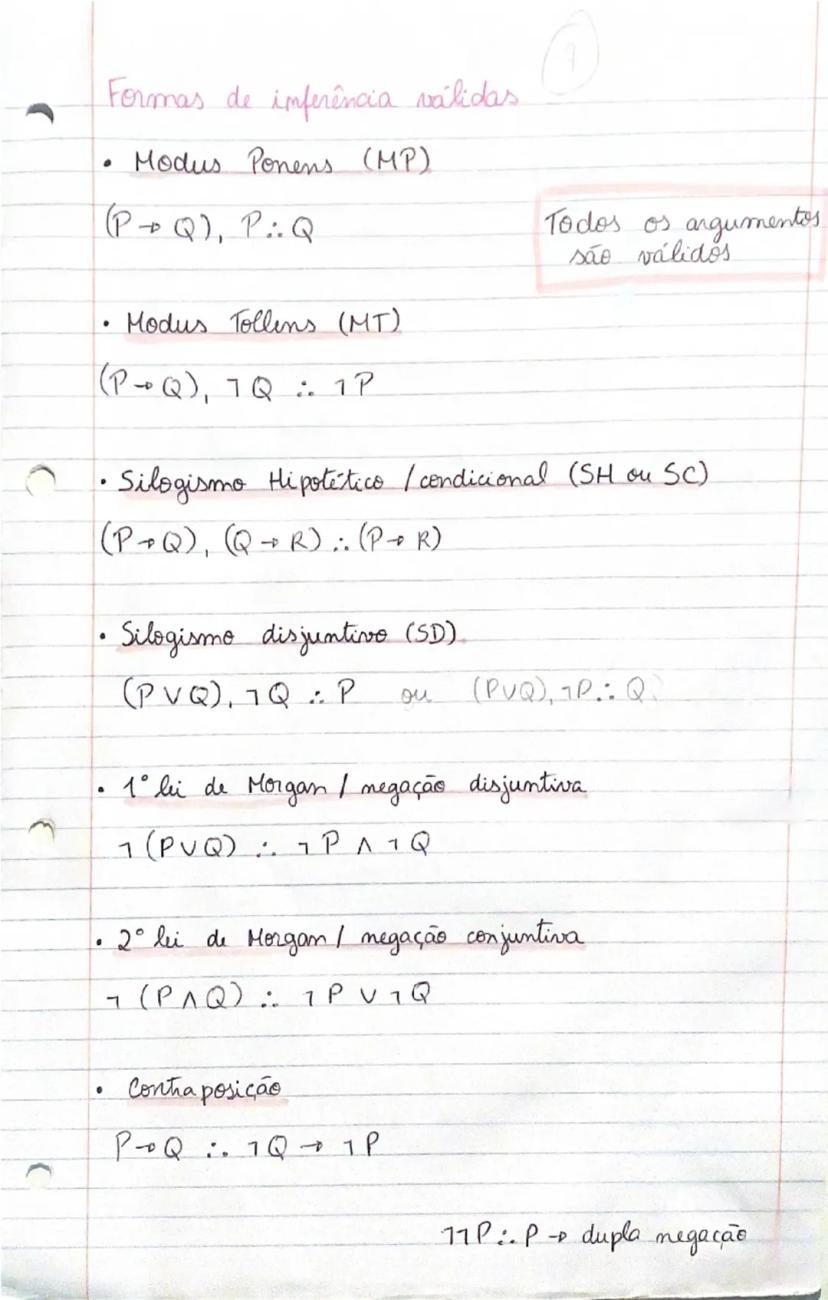 1
Formas de inferência válidas
• Modus Ponens (MP)
(P → Q), P ∴ Q
Todos os argumentos
são válidos
• Modus Tollens (MT)
(P → Q), ¬Q ∴ ¬P
• Silogismo Hipotético / condicional (SH ou SC)
(P → Q), (Q → R) ∴ (P → R)
• Silogismo disjuntivo (SD)
(P ∨ Q), ¬Q ∴ P ou (P∨Q), ¬P ∴ Q
• 1º lei de Morgan / negação disjuntiva
¬(P∨Q) ∴ ¬P ∧ ¬Q
• 2º lei de Morgan / negação conjuntiva
¬(P∧Q) ∴ ¬P ∨ ¬Q
• Contraposição
P→Q ∴ ¬Q → ¬P
¬¬P ∴ P → dupla negação